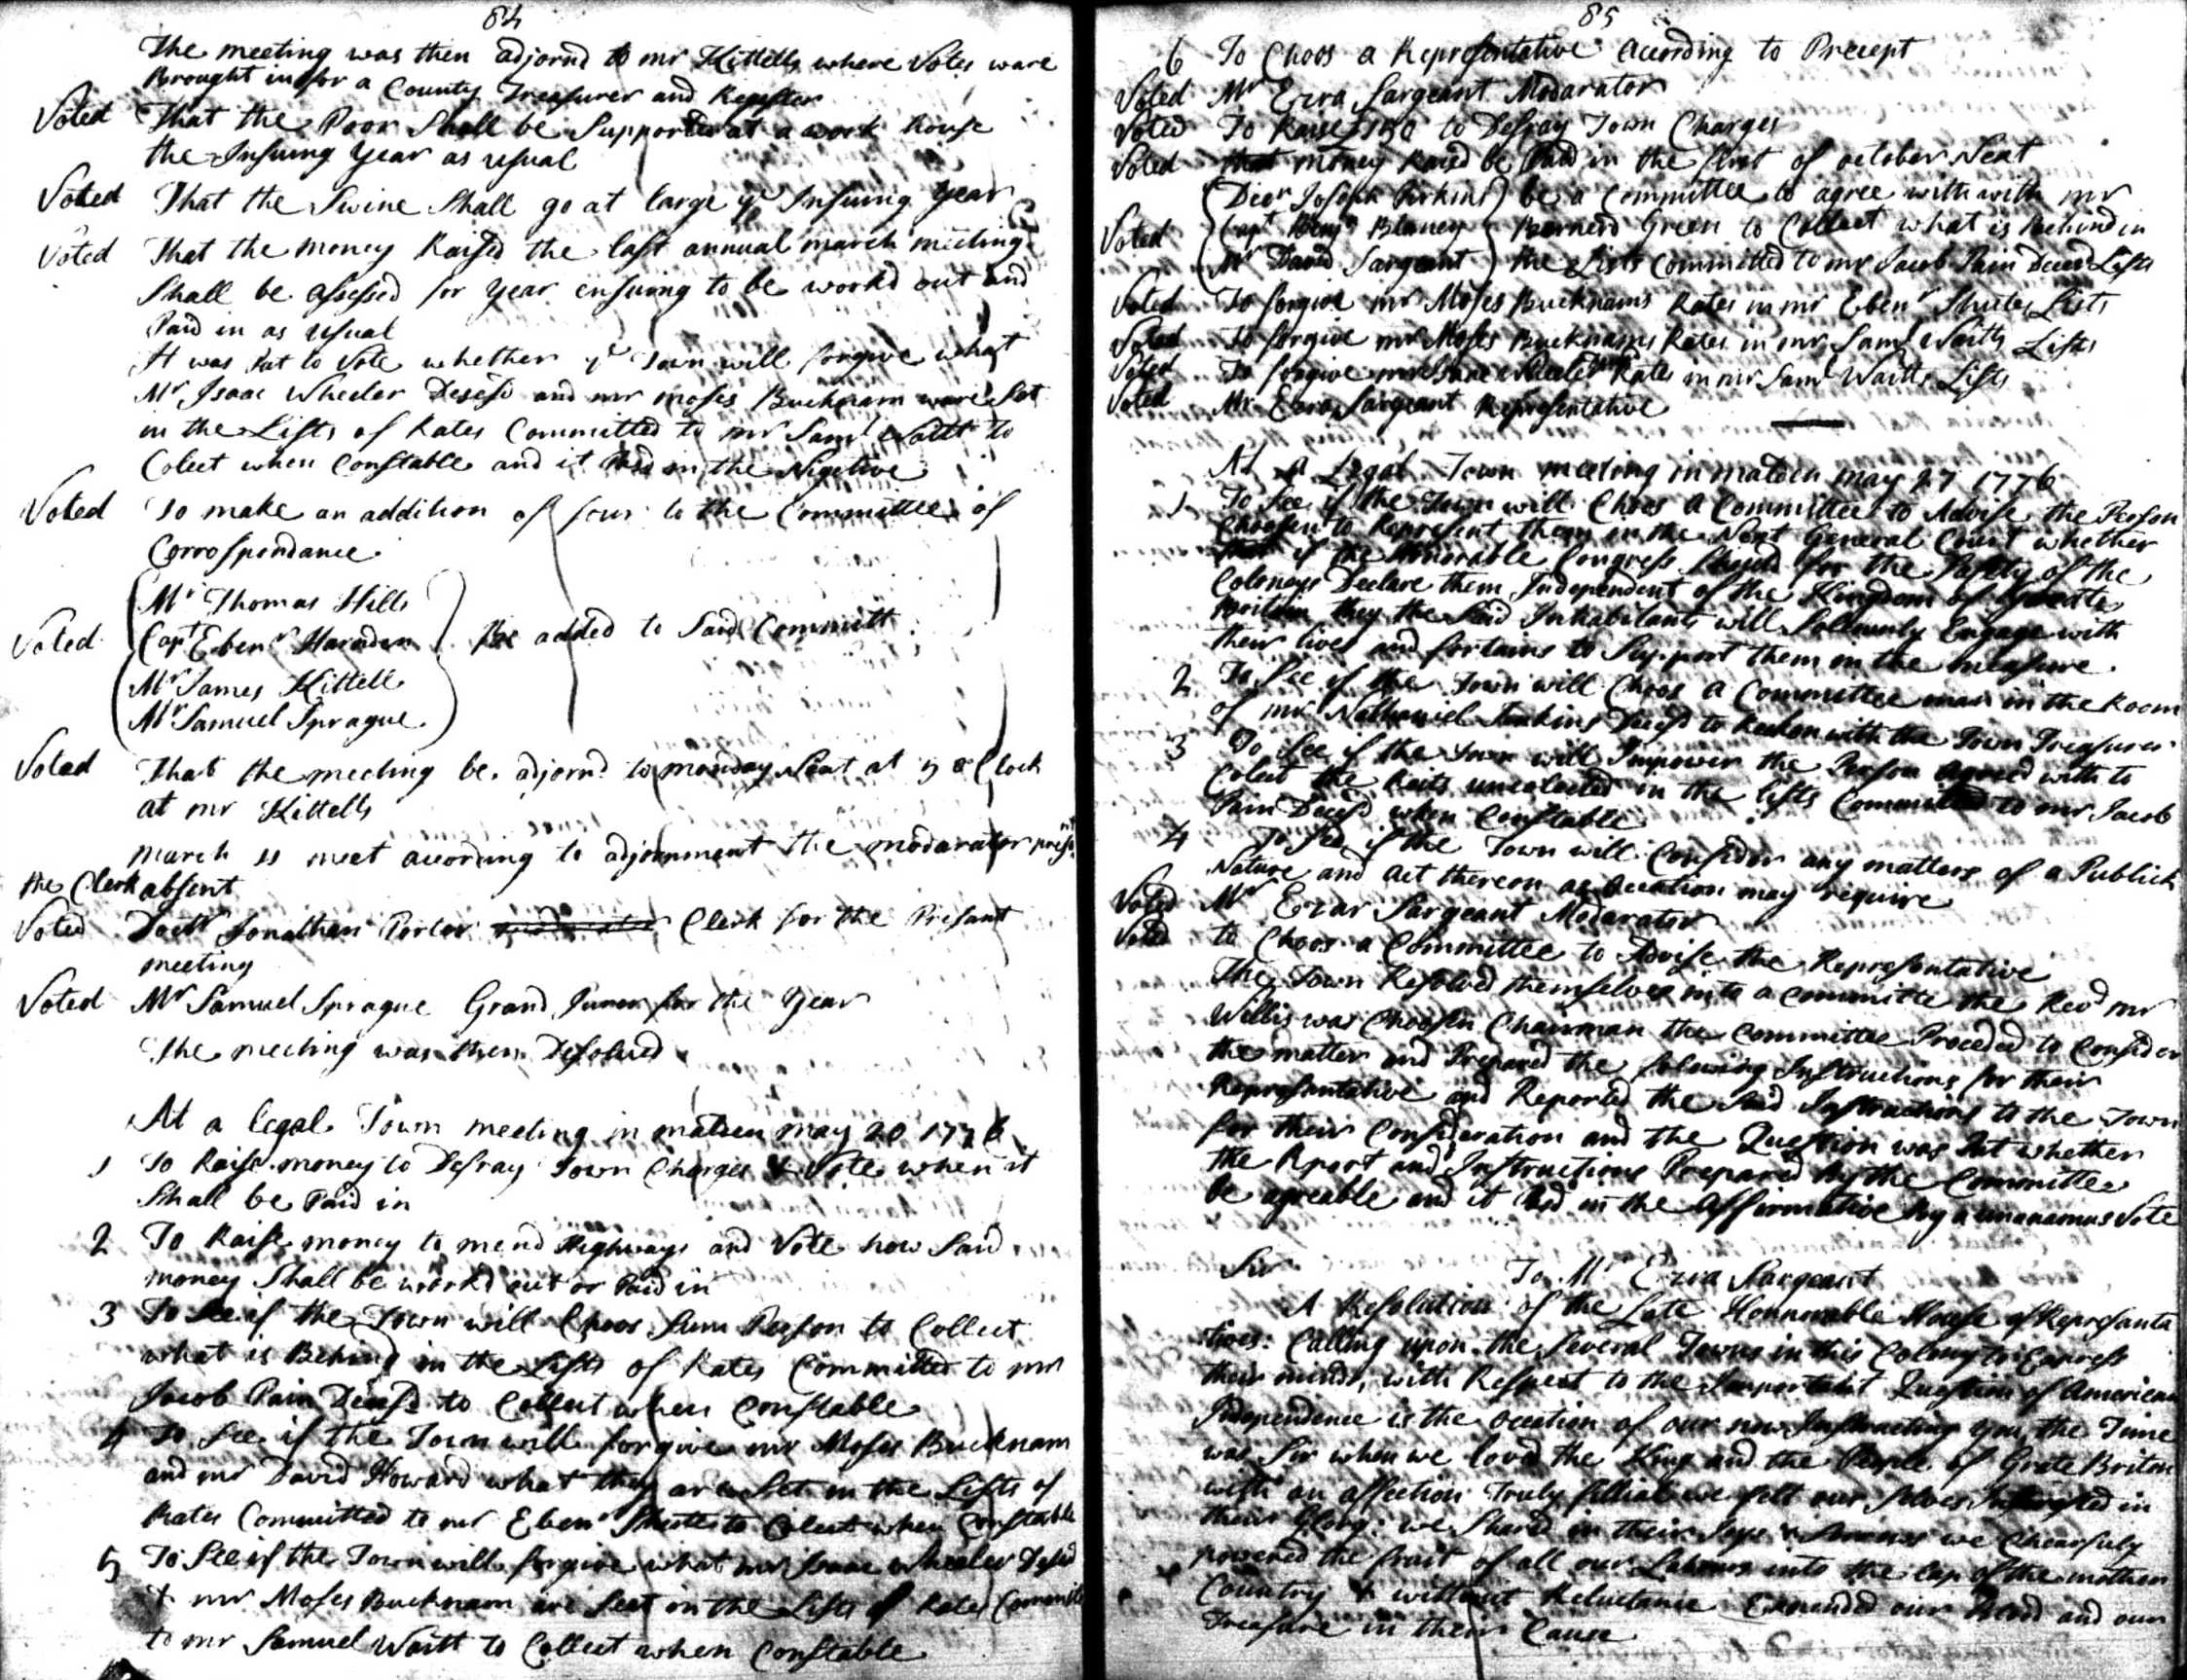 84
The meeting was then adjornd to mr Kittells where Votes ware
Brought in for a County Treasurer and Register
Voted That the Poor Shall be Supported at a work house
the Insuing Year as usual
Voted That the Swine Shall go at large ye Insuing Year
Voted That the money Raised the last annual march meeting
Shall be assessed for year ensuing to be workd out and
Paid in as usual
It was Put to Vote whether ye Town will forgive what
Mr Isaac Wheeler Desesd and mr moses Bucknam ware Set
in the Lists of Rates Committed to mr Saml Waitt to
Colect when Constable and it Past in the Nigetive
Voted To make an addition of four to the Committee of
Corrospondance
Mr Thomas Hills
Capt Ebenr Harnden
Voted Be added to Said Committ
Mr James Kittell
Mr Samuel Sprague
Voted That the meeting be adjornd to monday Neat at 5 o Clock
at mr Kittells
march 11 meet acording to adjornment the modarator presnt
the Clerk absent
Voted Doctr Jonathan Porter Clerk for the Present
meeting
Voted Mr Samuel Sprague Grand Juror for the Year
The meeting was then Desolved
At a legal Town meeting in malden may 20 1776
1 To Raise money to Defray Town Charges & Vote when it
Shall be Paid in
2 To Raise money to mend Highways and Vote how Said
money Shall be workd out or Paid in
3 To See if the Town will Choos Sum Person to Collect
what is Behind in the Lists of Rates Committed to mr
Jacob Pain Decesd to Collect when Constable
4 To See if the Town will forgive mr Moses Bucknam
and mr David Howard what they are Set in the Lists of
Rates Committed to mr Ebenr Shute to Colect when Constable
5 To See if the Town will forgive what mr Isaac Wheeler Desesd
& mr Moses Bucknam are Seet in the Lists of Rates Committed
to mr Samuel Waitt to Collect when Constable
85
6 To Choos a Representative according to Precept
Voted Mr Ezra Sargeant Modarator
Voted To Raise £150 to Defray Town Charges
Voted that money Raised be Paid in the first of october Neat
Decr Joseph Perkins be a Committee to agree with with mr
Voted Capt Benjn Blaney Bernerd Green to Collect what is Behind in
Mr David Sargeant the Lists Committed to mr Jacob Pain Decesd Lists
Voted To forgive mr Moses Bucknams Rates in mr Ebenr Shutes Lists
Voted To forgive mr Moses Bucknams Rates in mr Saml Waitts Lists
Voted To forgive mr Isaac Wheelers Rates in mr Saml Waitts Lists
Voted Mr Ezra Sargeant Representative
At a Legal Town meeting in malden may 27 1776
1 To See if the Town will Choos a Committee to Advise the Person
Choosen to Represent them in the Next General Court whether
that if the Honorable Congress Should for the Safety of the
Coloneys Declare them Independent of the Kingdom of Greate
Britan they the Said Inhabitants will Solemnly Engage with
their lives and fortains to Support them in the measure
2 To See if the Town will Choos a Committee man in the Room
of mr Nathaniel Jenkins Decesd to Reckon with the Town Treasurer
3 To See if the Town will Impower the Person agreed with to
Colect the Raits uncolected in the lists Committed to mr Jacob
Pain Decesd when Constable
4 To See if the Town will Consider any matters of a Publick
Nature and act thereon as Occation may require
Voted Mr Ezrar Sargeant Modarator
Voted to Choos a Committee to Advise the Representative
The Town Resolved themselves into a committe the Revd mr
Willis was Choosen Chairman the Committee Proceded to Consider
the matter and Prepared the folowing Instructions for their
Representative and Reported the Said Instructions to the Town
for their Consideration and the Question was Put whether
the Report and Instructions Prepared by the Committee
be agreable and it Past in the Affirmative by a unanamus Vote
Sir To Mr Ezra Sargeant
A Resolution of the Late Honnorable House of Representa
tives: Calling upon the Several Towns in this Colony to Express
their minds, with Respect to the Important Question of American
Independence is the occation of our now Instructing you, the Time
was Sir when we loved the King and the People of Grate Briton
with an affection Truly fillial we felt our Selves Intrested in
their Glory: we Shared in their Joys & Sorrows we Chearfuly
powered the fruit of all our Labours into the lap of the mother
Country & without Reluctance Expended our Blood and our
Treasure in their Cause